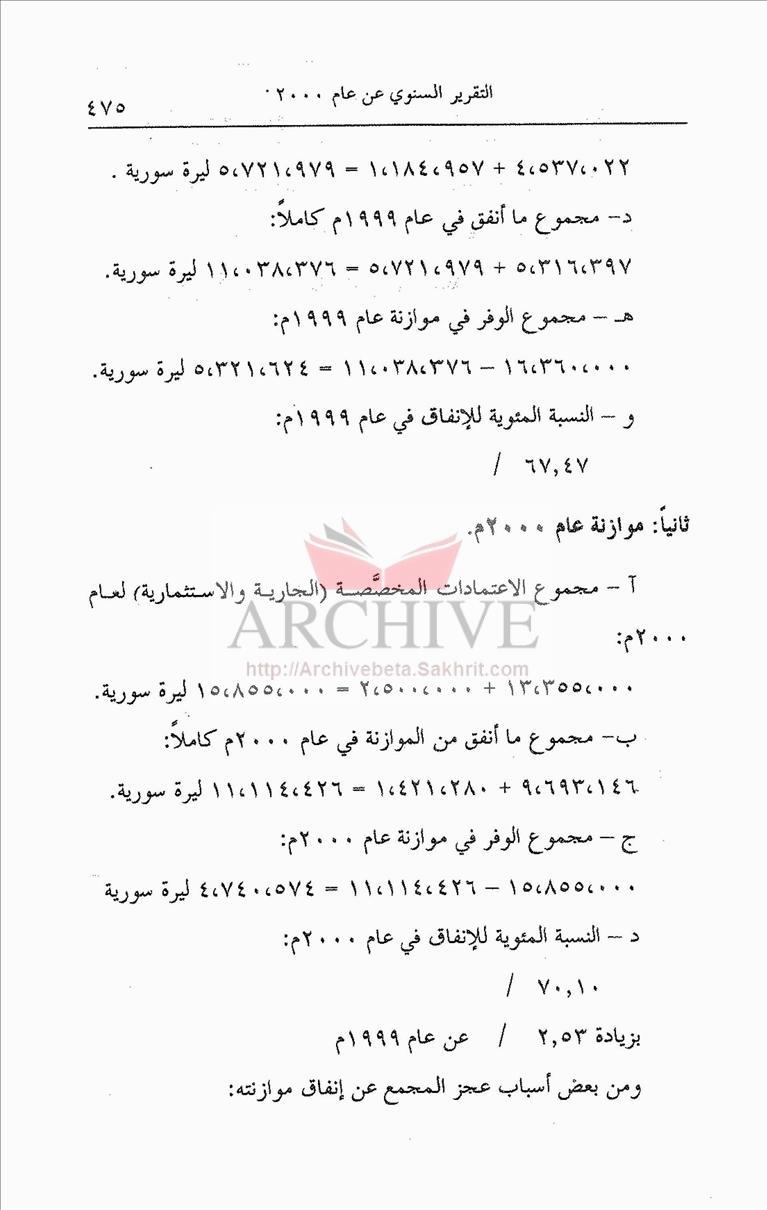 التقرير السنوي عن عام ٢٠٠٠
٤٧٥
٤،٥٣٧،٠٢٢ + ١،١٨٤،٩٥٧ = ٥،٧٢١،٩٧٩ ليرة سورية .
د- مجموع ما أنفق في عام ١٩٩٩م كاملاً:
٥،٣١٦،٣٩٧ + ٥،٧٢١،٩٧٩ = ١١،٠٣٨،٣٧٦ ليرة سورية.
هـ – مجموع الوفر في موازنة عام ١٩٩٩م:
١٦،٣٦٠،٠٠٠ – ١١،٠٣٨،٣٧٦ = ٥،٣٢١،٦٢٤ ليرة سورية.
و – النسبة المئوية للإنفاق في عام ١٩٩٩م:
٦٧,٤٧ /
ثانياً: موازنة عام ٢٠٠٠م.
آ – مجموع الاعتمادات المخصَّصة (الجارية والاستثمارية) لعام
٢٠٠٠م:
ARCHIVE
http://Archivebeta.Sakhrit.com
١٣،٣٥٥،٠٠٠ + ٢،٥٠٠،٠٠٠ = ١٥،٨٥٥،٠٠٠ ليرة سورية.
ب- مجموع ما أنفق من الموازنة في عام ٢٠٠٠م كاملاً:
٩،٦٩٣،١٤٦ + ١،٤٢١،٢٨٠ = ١١،١١٤،٤٢٦ ليرة سورية.
ج – مجموع الوفر في موازنة عام ٢٠٠٠م:
١٥،٨٥٥،٠٠٠ – ١١،١١٤،٤٢٦ = ٤،٧٤٠،٥٧٤ ليرة سورية
د – النسبة المئوية للإنفاق في عام ٢٠٠٠م:
٧٠,١٠ /
بزيادة ٢,٥٣ / عن عام ١٩٩٩م
ومن بعض أسباب عجز المجمع عن إنفاق موازنته: